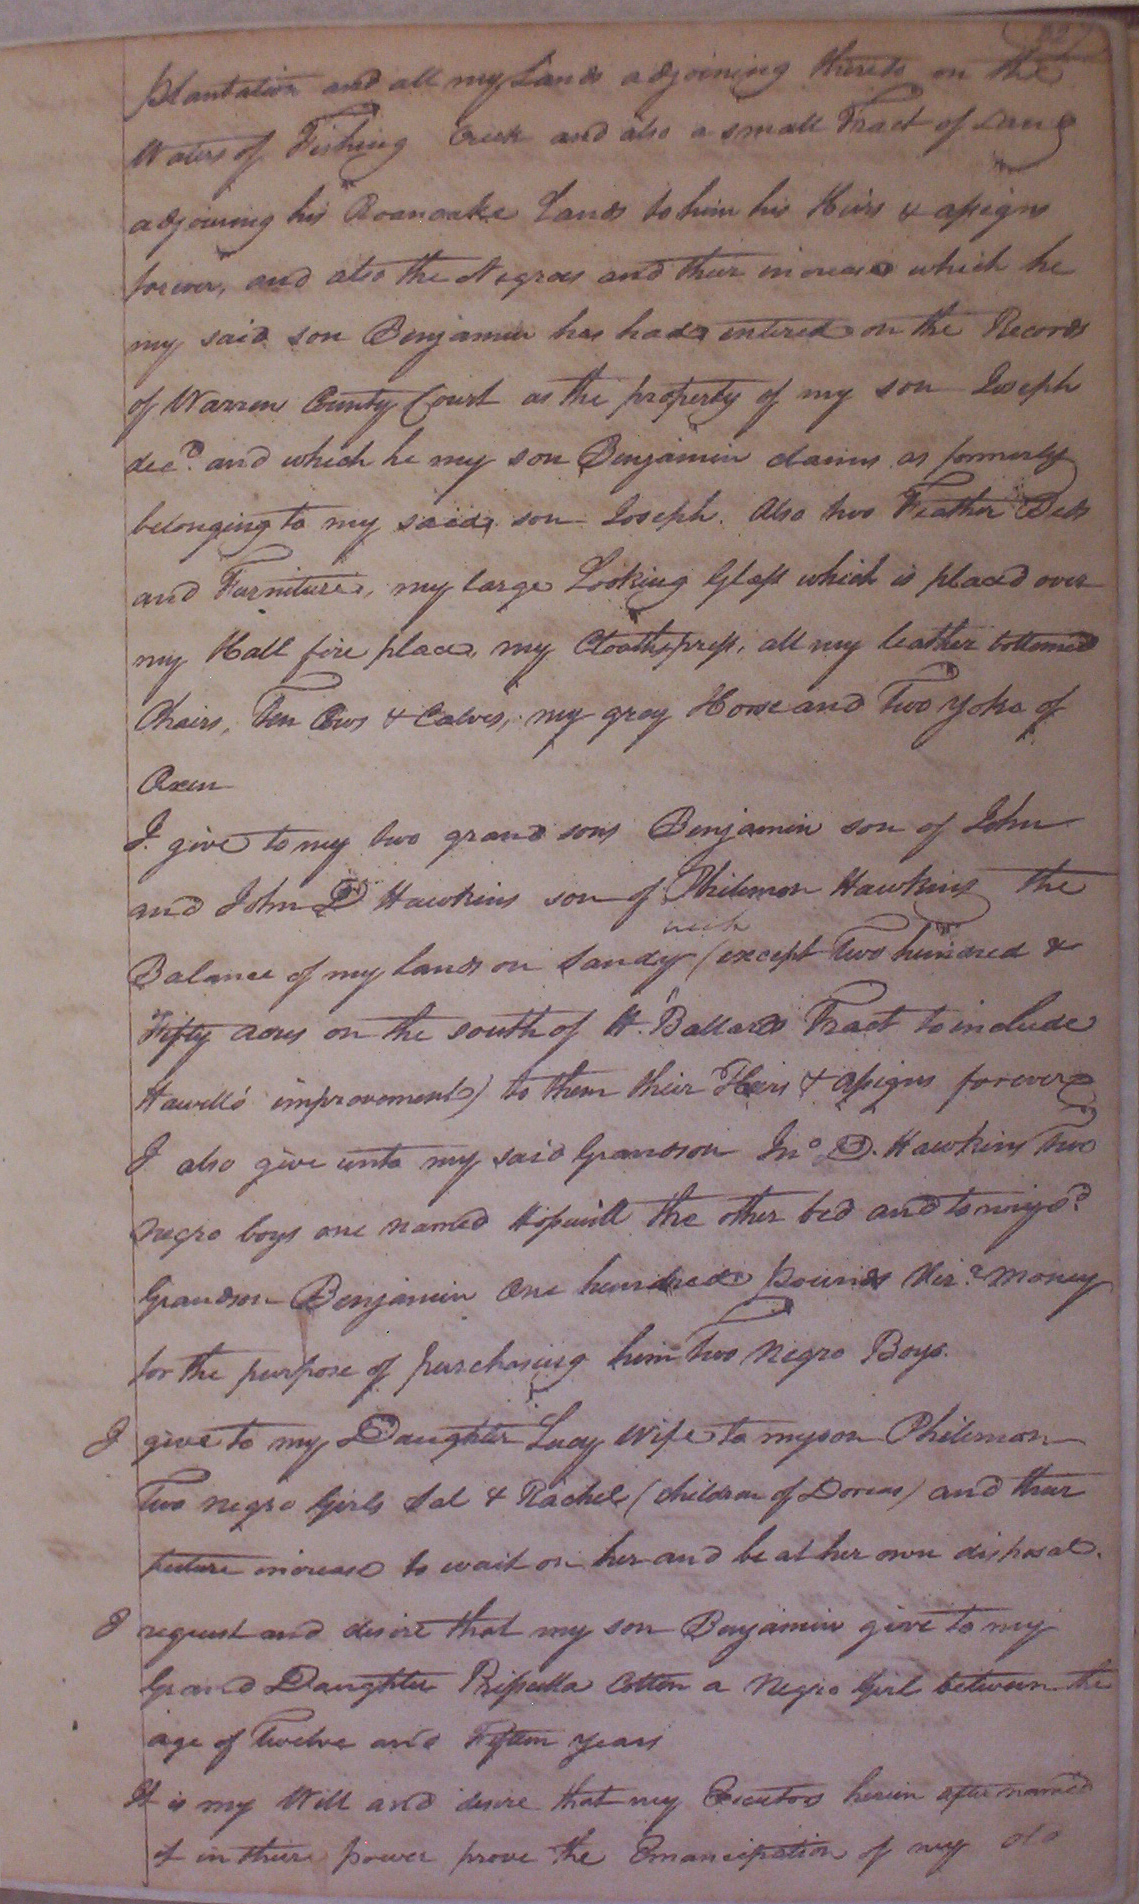 plantation and all my Lands adjoining thereto on the
Waters of Fishing Creek and also a small Tract of Land
adjoining his Roanoake Lands to him his Heirs & assigns
forever, and also the Negroes and their increase which he
my said son Benjamin has had entered on the Records
of Warren County Court as the property of my son Joseph
decd. and which he my son Benjamin claims as formerly
belonging to my said son Joseph. Also two Feather Beds
and Furniture, my large Looking Glass which is placed over
my Hall fire place, my Cloathspress, all my leather bottomed
Chairs, Ten Cows & Calves, my gray Horse and Two Yoke of
Oxen
I give to my two grand sons Benjamin son of John
and John D Hawkins son of Philemon Hawkins the
creek
Balance of my lands on Sandy (except Two hundred &
Fifty acres on the south of H. Ballards Tract to include
Hawell's improvement) to them their Heirs & assigns forever
I also give unto my said Grandson Jno. D. Hawkins Two
negro boys one named Hopwill the other bed and to my sd.
Grandson Benjamin One hundred pounds Vira. Money
for the purpose of purchasing him Two Negro Boys.
I give to my Daughter Lucy Wife to my son Philemon
Two negro Girls Sal & Rachel (children of Dorcas) and their
future increase to wait on her and be at her own disposal.
I request and desire that my son Benjamin give to my
Grand Daughter Prisscilla Cotten a Negro Girl between the
age of Twelve and Fifteen years
It is my Will and desire that my Executors herein after named
if in their power prove the Emancipation of my old